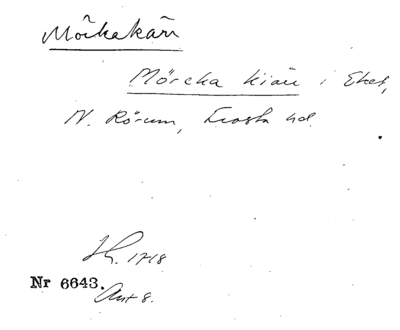 Mörkakärr
Mörcka kiärr i Eket,
N. Rörum, Frosta hd.
Jb. 1718
Nr 6643.
Ant 8.